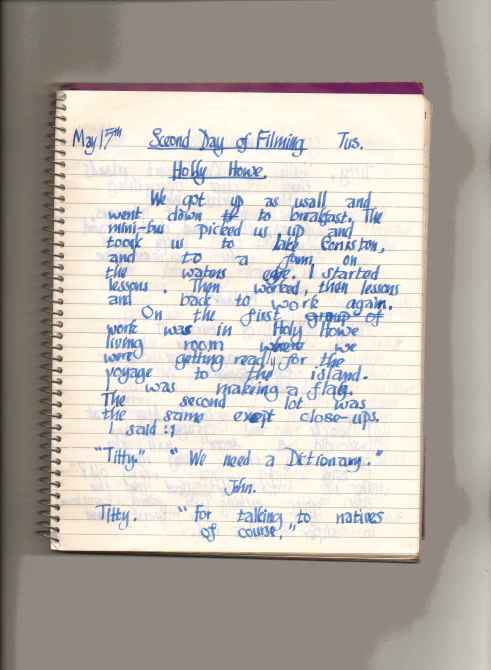 May 15th Second Day of Filming Tus.
Holly Howe.
We got up as usall and
went down to to breakfast. The
mini-bus picked us up and
toock us to lake Coniston,
and to a farm on
the waters edge. I started
lessons. Then worked, then lessons
and back to work again.
On the first group of
work was in Holy Howe
living room where we
were getting ready for the
voyage to the island.
I was making a flag.
The second lot was
the same exept close-ups.
I said :1
"Titty." "We need a Dictionary."
John.
Titty. "For talking to natives
of course."